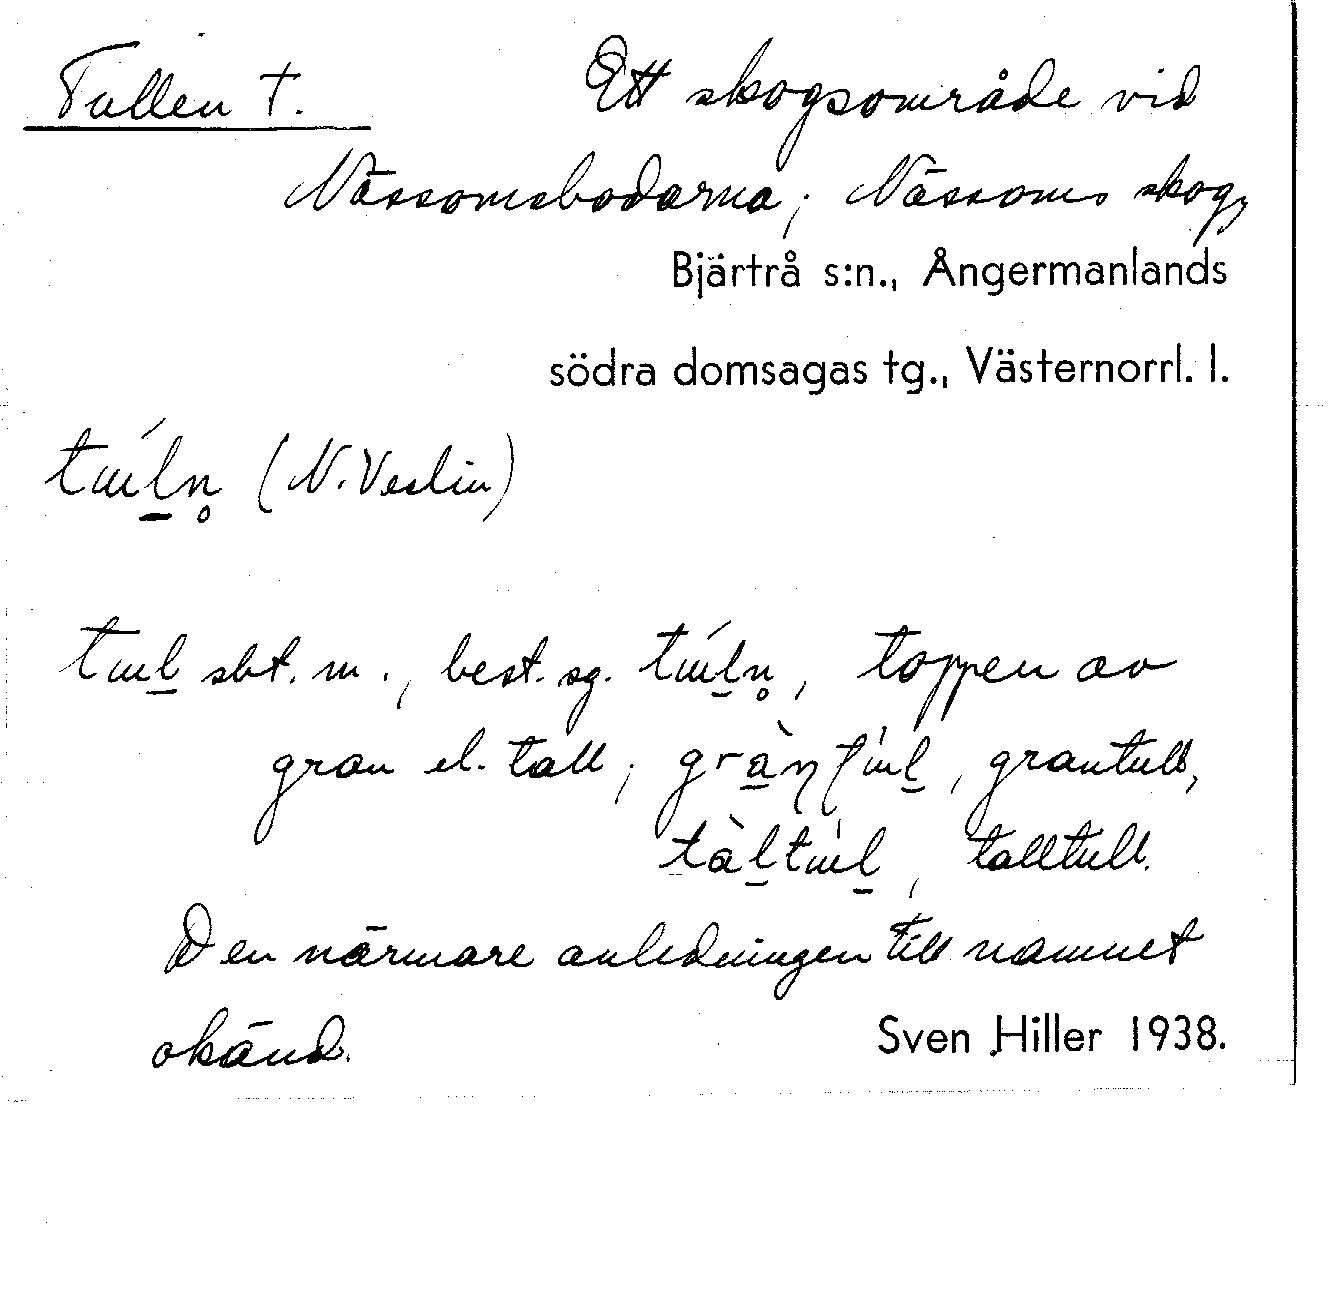 Tullen t. Ett skogsområde vid
Nässomsbodarna; Nässoms skog,
Bjärtrå s:n., Ångermanlands
södra domsagas tg., Västernorrl. l.
(N. Veslin)
sbt. m., best. sg. toppen av
gran el. tall; grantull,
talltull.
Den närmare anledningen till namnet
okänd. Sven Hiller 1938.